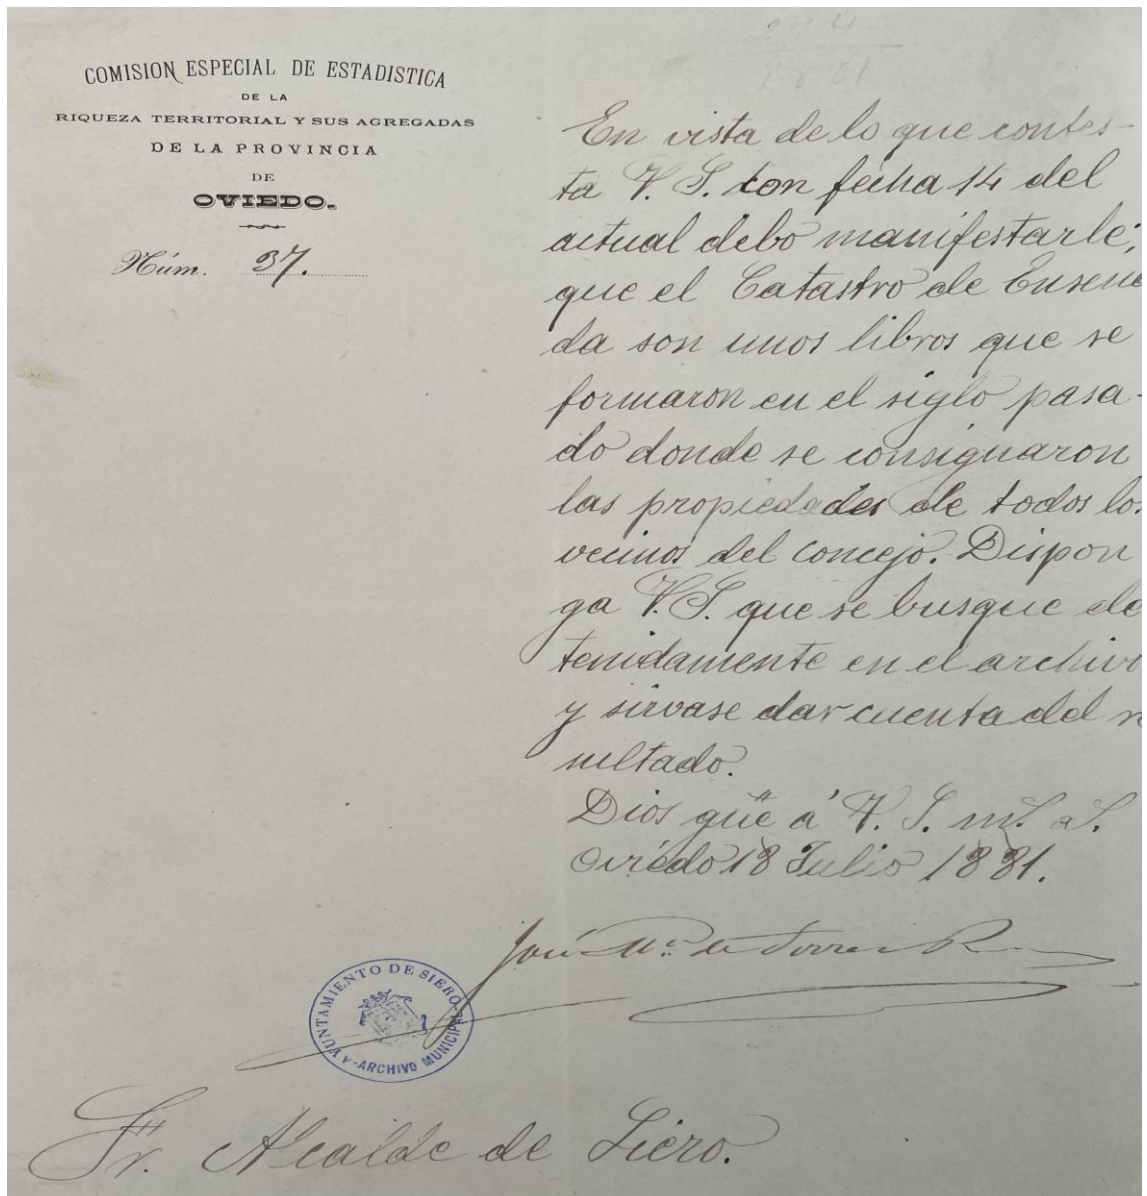 COMISION ESPECIAL DE ESTADISTICA
DE LA
RIQUEZA TERRITORIAL Y SUS AGREGADAS
DE LA PROVINCIA
DE
OVIEDO.
Núm. 37.
En vista de lo que contes-
ta V. S. con fecha 14 del
actual debo manifestarle;
que el Catastro de Ensena
da son unos libros que se
formaron en el siglo pasa-
do donde se consignaron
las propiedades de todos los
vecinos del concejo. Dispon
ga V. S. que se busque de
tenidamente en el archivo
y sirvase dar cuenta del re
sultado.
Dios gue á V. S. m. a.
Oviedo 18 Julio 1881.
José Mª de Torres
AYUNTAMIENTO DE SIERO
ARCHIVO MUNICIPAL
Sr. Alcalde de Siero.